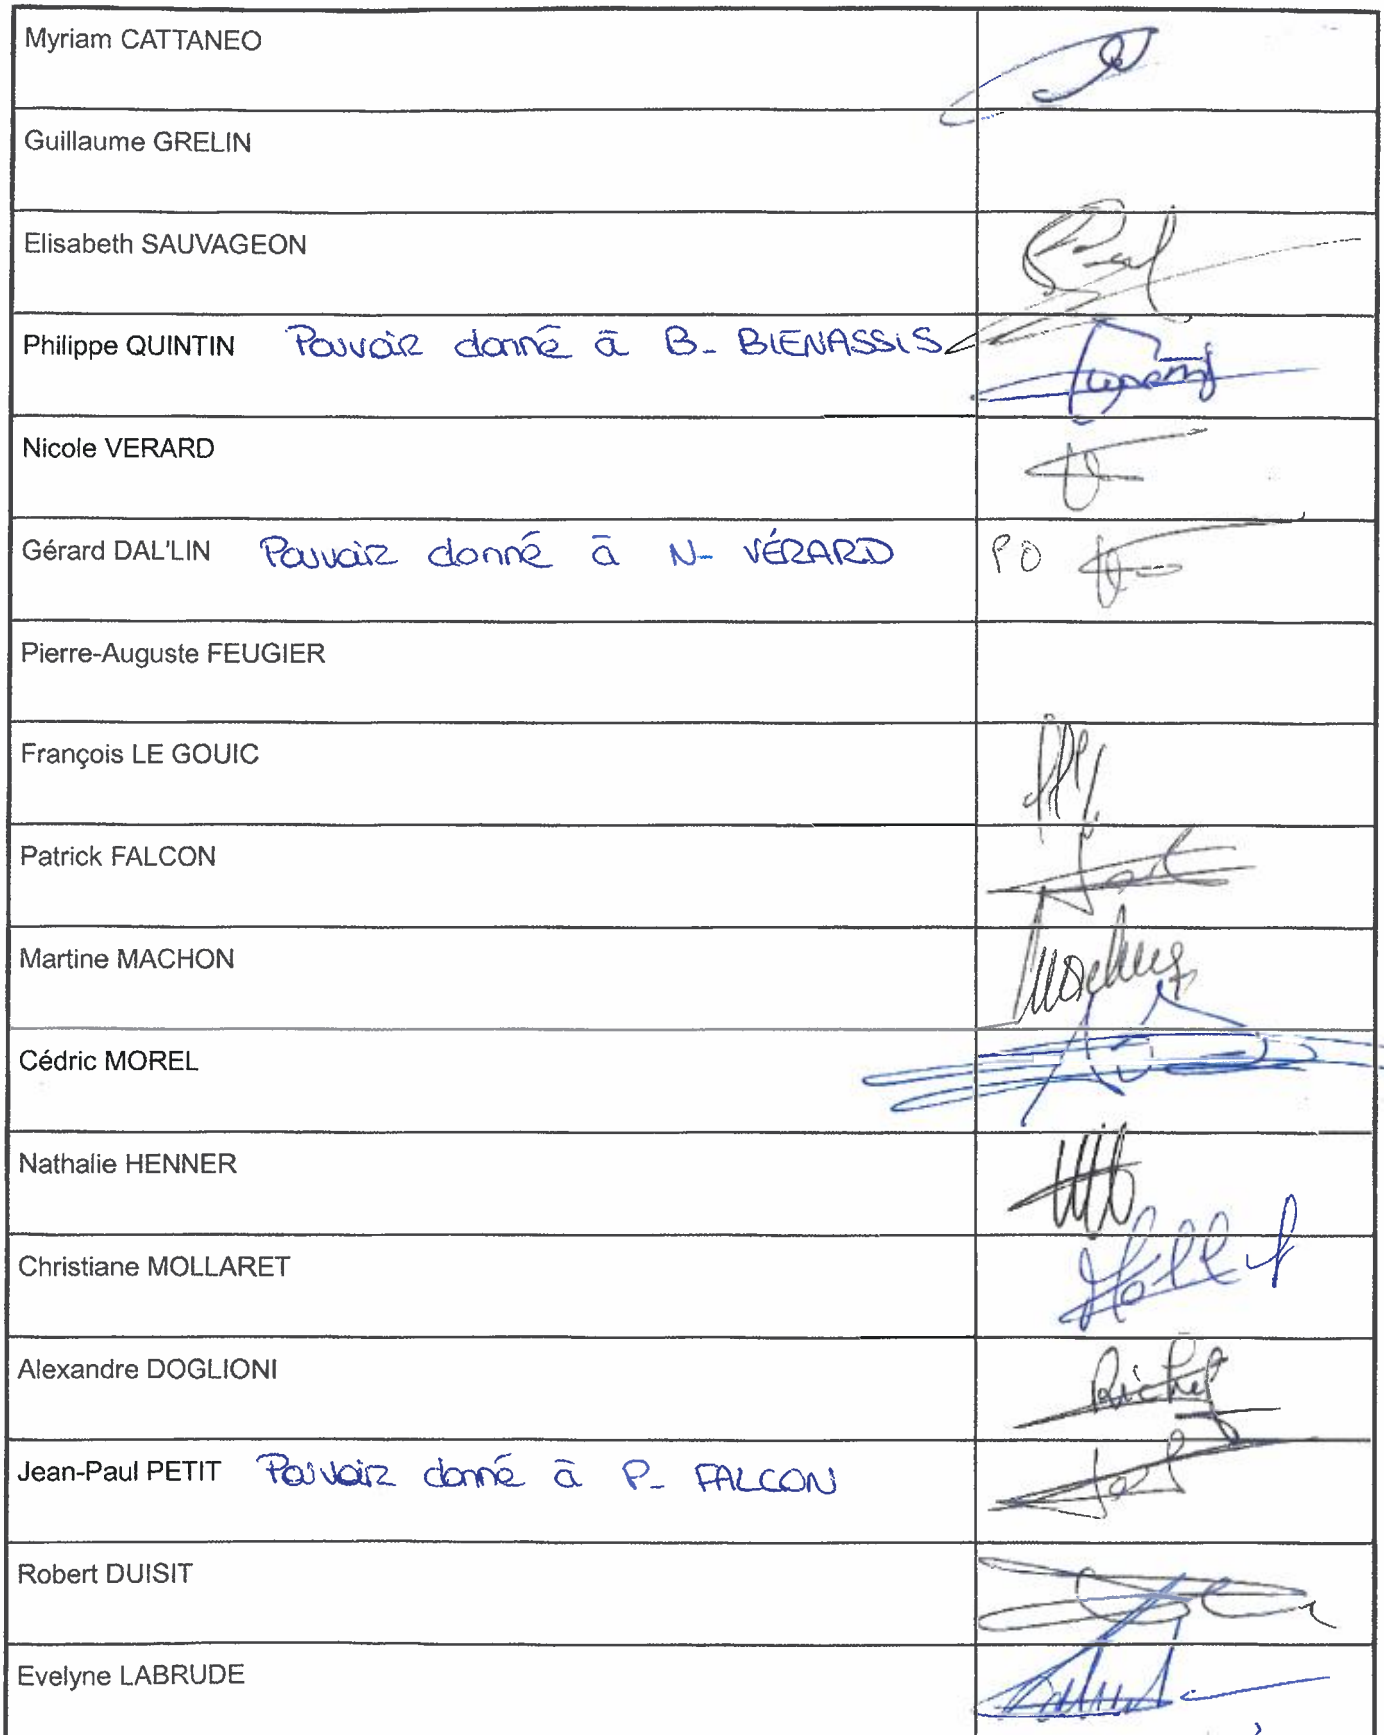 Myriam CATTANEO
Guillaume GRELIN
Elisabeth SAUVAGEON
Philippe QUINTIN Pouvoir donné à B- BIENASSIS
Nicole VERARD
Gérard DAL'LIN Pouvoir donné à N- VÉRARD PO
Pierre-Auguste FEUGIER
François LE GOUIC
Patrick FALCON
Martine MACHON
Cédric MOREL
Nathalie HENNER
Christiane MOLLARET
Alexandre DOGLIONI
Jean-Paul PETIT Pouvoir donné à P- FALCON
Robert DUISIT
Evelyne LABRUDE